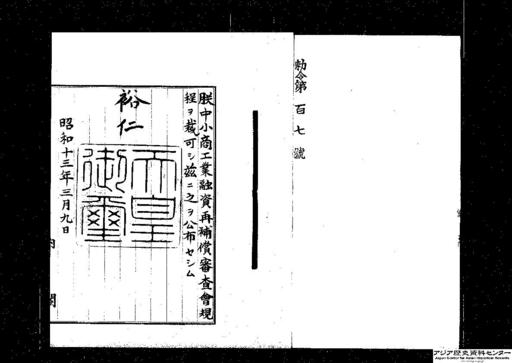 勅令第百七號
朕中小商工業融資再補償審査會規
程ヲ裁可シ茲ニ之ヲ公布セシム
裕仁
天皇
御璽
昭和十三年三月九日
内閣
アジア歴史資料センター
Japan Center for Asian Historical Records